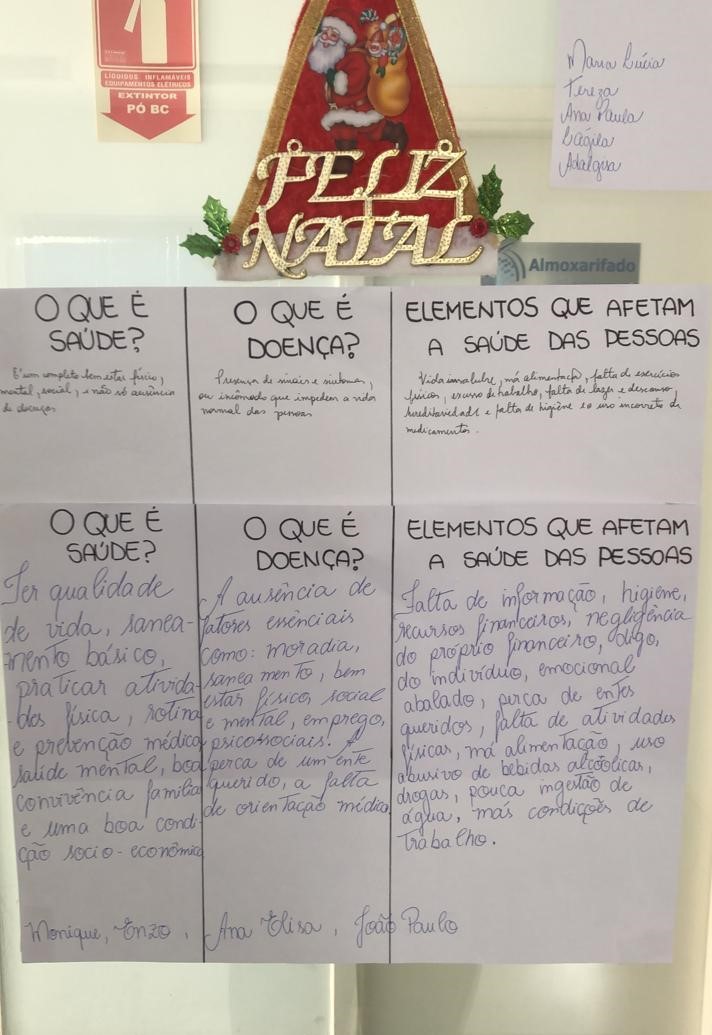 LÍQUIDOS INFLAMÁVEIS
EQUIPAMENTOS ELÉTRICOS
EXTINTOR
PÓ BC
FELIZ
NATAL
Maria Lúcia
Tereza
Ana Paula
Lágila
Adalgisa
Almoxarifado
O QUE É
SAÚDE?
É um completo bem estar físico,
mental, social, e não só ausência
de doenças
O QUE É
DOENÇA?
Presença de sinais e sintomas,
ou incômodo que impedem a vida
normal das pessoas
ELEMENTOS QUE AFETAM
A SAÚDE DAS PESSOAS
Vida insalubre, má alimentação, falta de exercícios
físicos, excesso de trabalho, falta de lazer e descanso,
hereditariedade e falta de higiêne e o uso incorreto de
medicamentos.
O QUE É
SAÚDE?
Ter qualidade
de vida, sanea-
mento básico,
praticar ativida-
des física, rotina
e prevenção médica
saúde mental, boa
convivência familia
e uma boa condi-
ção socio-econômica
O QUE É
DOENÇA?
A ausência de
fatores essênciais
como: moradia,
saneamento, bem
estar físico, social
e mental, emprego,
psicossociais. A
perca de um ente
querido, a falta
de orientação médica
ELEMENTOS QUE AFETAM
A SAÚDE DAS PESSOAS
Falta de informação, higiene,
recursos financeiros, negligência
do próprio financeiro, digo,
do indivíduo, emocional
abalado, perca de entes
queridos, falta de atividades
físicas, má alimentação, uso
abusivo de bebidas alcóolicas,
drogas, pouca ingestão de
água, más condições de
trabalho.
Monique, Enzo, Ana Elisa, João Paulo